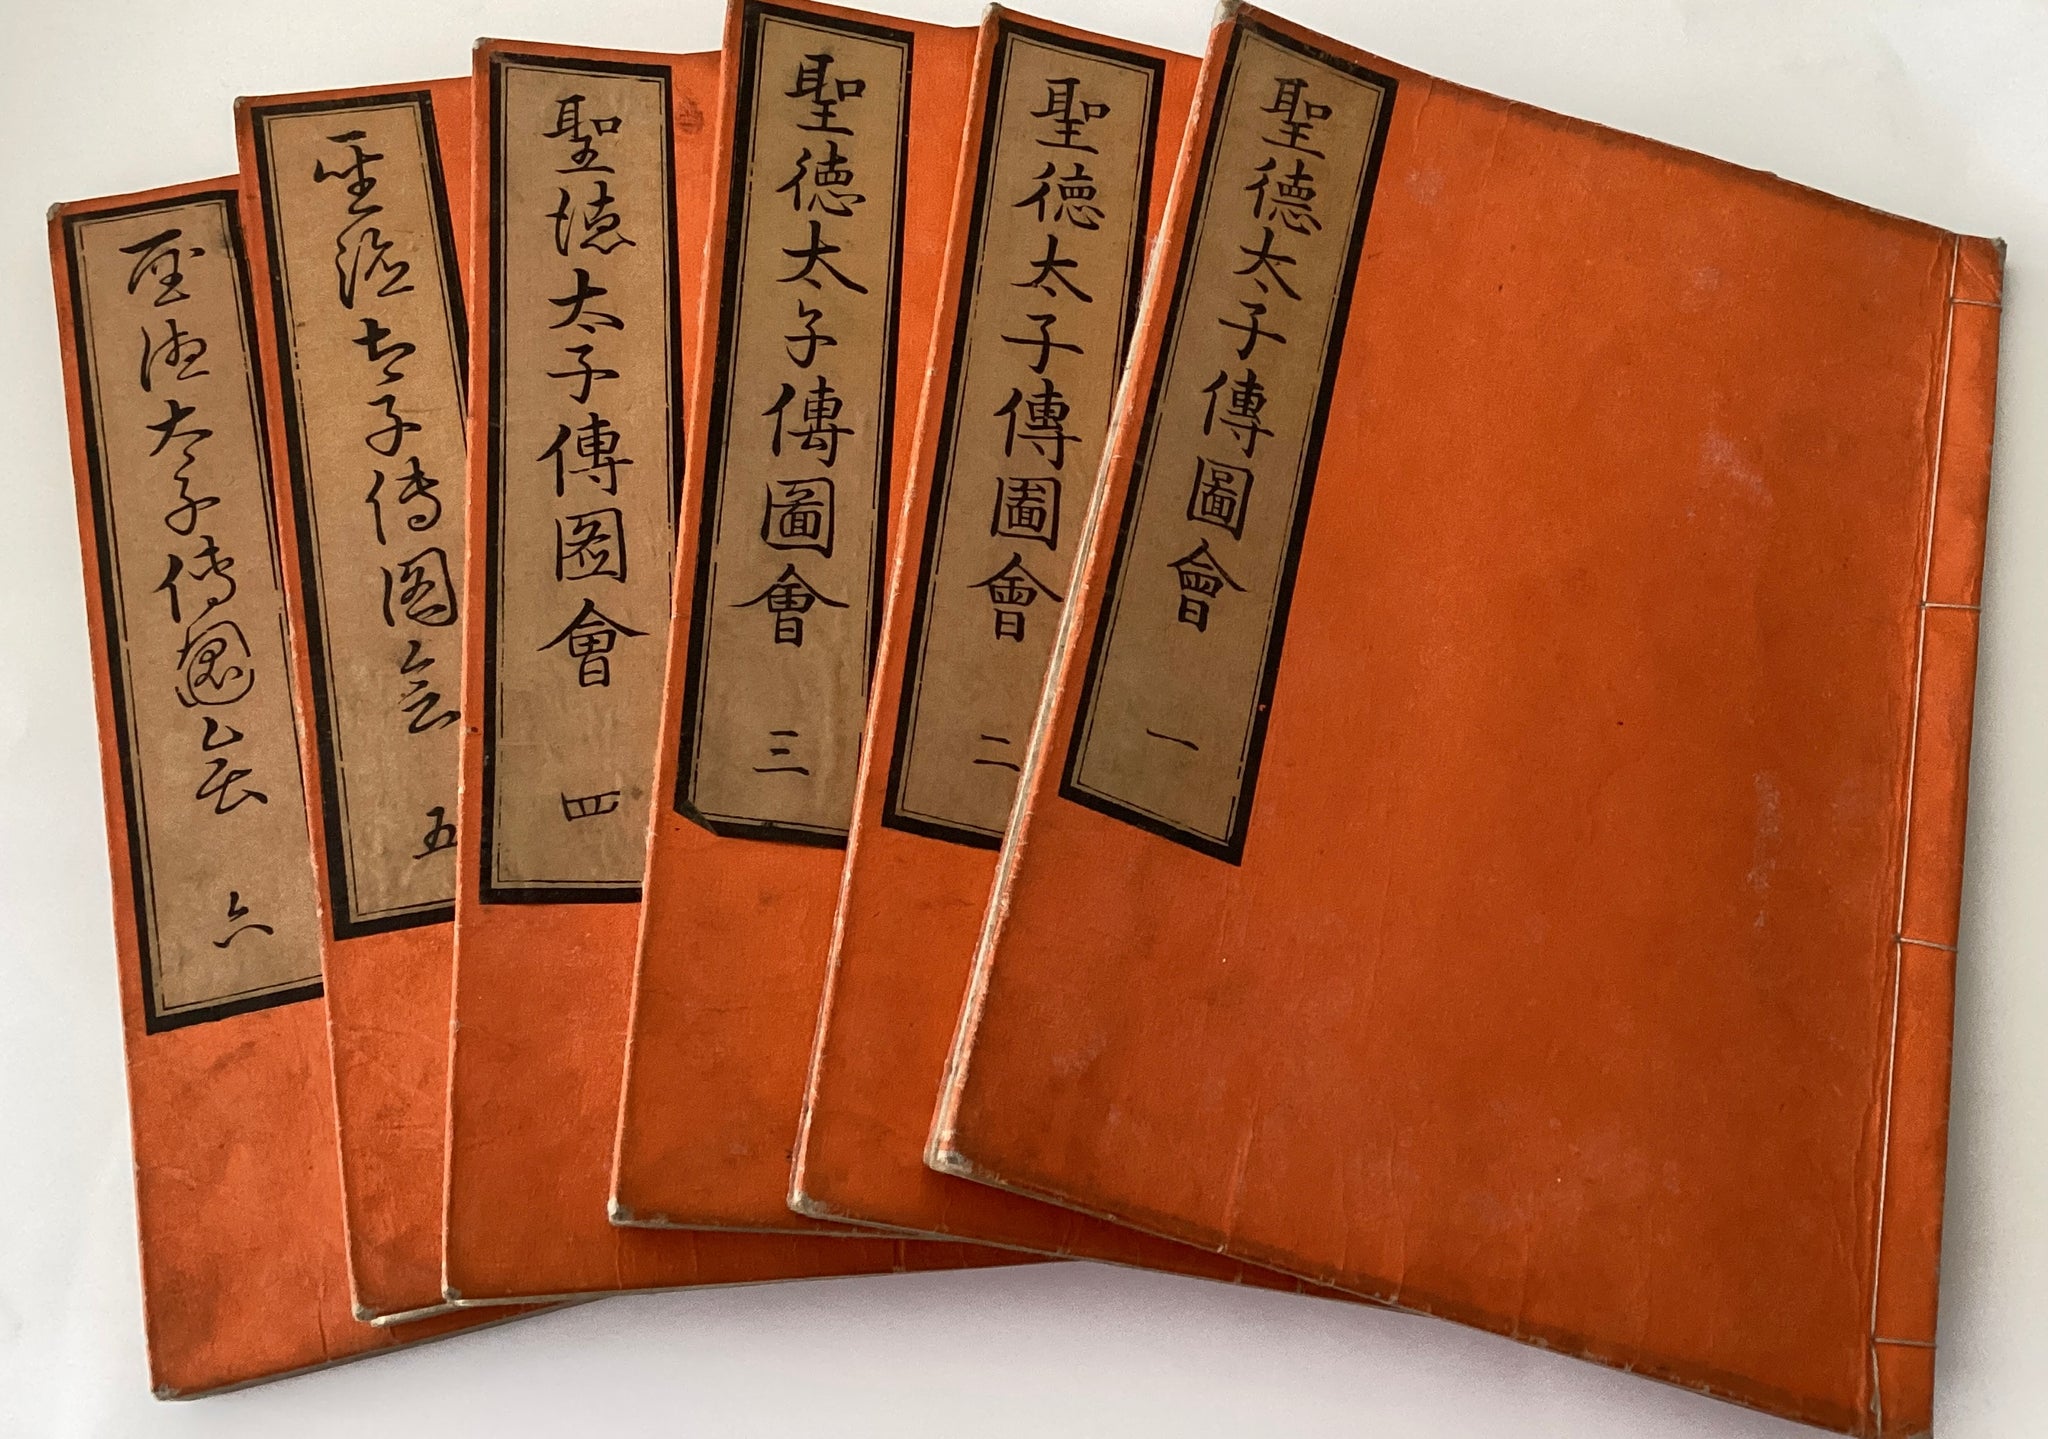 聖德太子傳圖會 一
聖德太子傳圖會 二
聖德太子傳圖會 三
聖德太子傳圖會 四
聖德太子傳圖會 五
聖德太子傳圖會 六